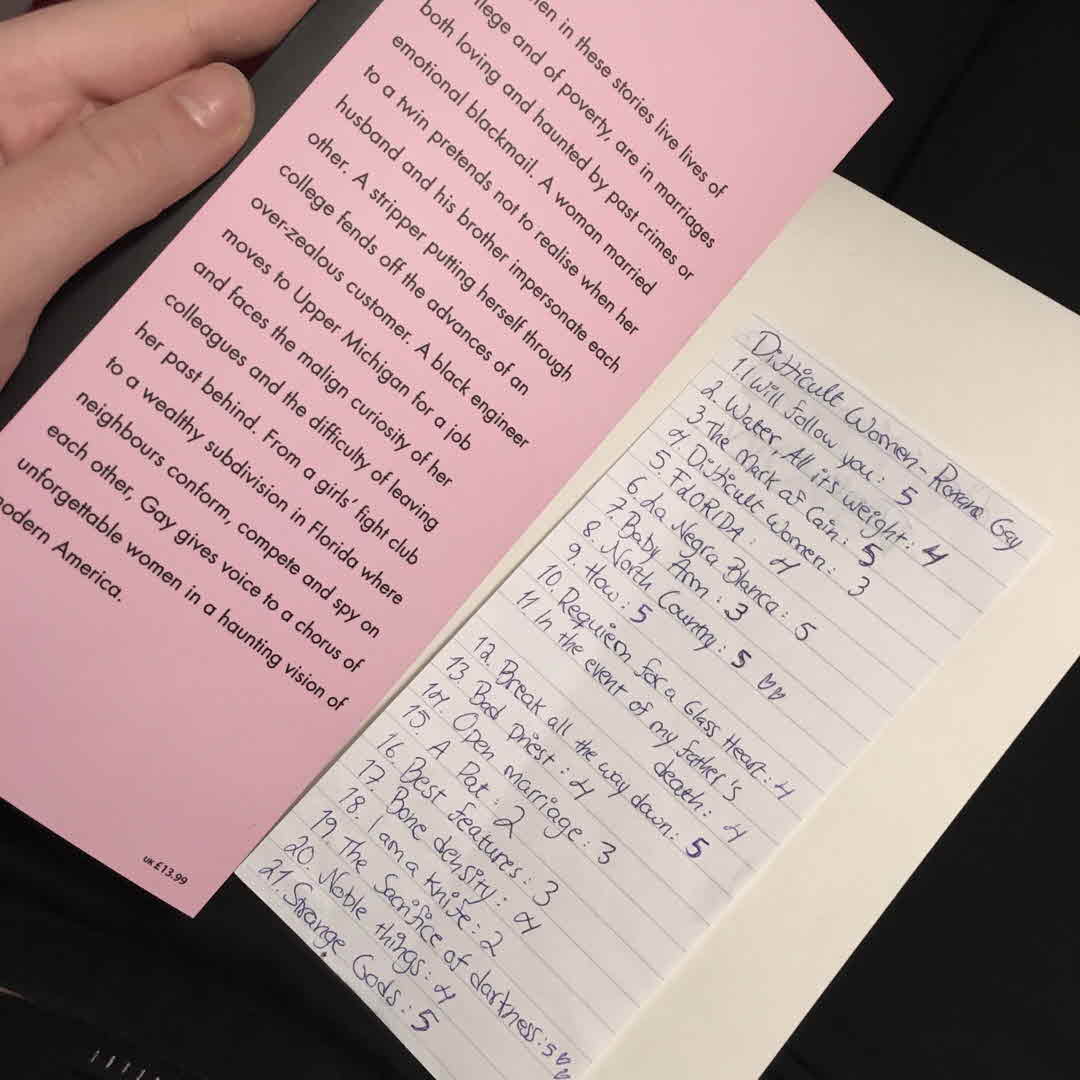 men in these stories live lives of
lege and of poverty, are in marriages
both loving and haunted by past crimes or
emotional blackmail. A woman married
to a twin pretends not to realise when her
husband and his brother impersonate each
other. A stripper putting herself through
college fends off the advances of an
over-zealous customer. A black engineer
moves to Upper Michigan for a job
and faces the malign curiosity of her
colleagues and the difficulty of leaving
her past behind. From a girls' fight club
to a wealthy subdivision in Florida where
neighbours conform, compete and spy on
each other, Gay gives voice to a chorus of
unforgettable women in a haunting vision of
modern America.
UK £13.99
Difficult Women - Roxane Gay
1. I will follow you : 5
2. Water, All its weight : 4
3 The Mark of Cain : 5
4. Difficult Women : 3
5. FLORIDA : 4
6. La Negra Blanca : 5
7. Baby Arm : 3
8. North Country : 5 ♡♡
9. How : 5
10. Requiem for a Glass Heart : 4
11. In the event of my father's
death : 4
12. Break all the way down : 5
13. Bad Priest : 4
14. Open marriage : 3
15. A Pat : 2
16. Best features : 3
17. Bone density : 4
18. I am a knife : 2
19. The Sacrifice of darkness : 5 ♡♡
20. Noble things : 4
21. Strange Gods : 5